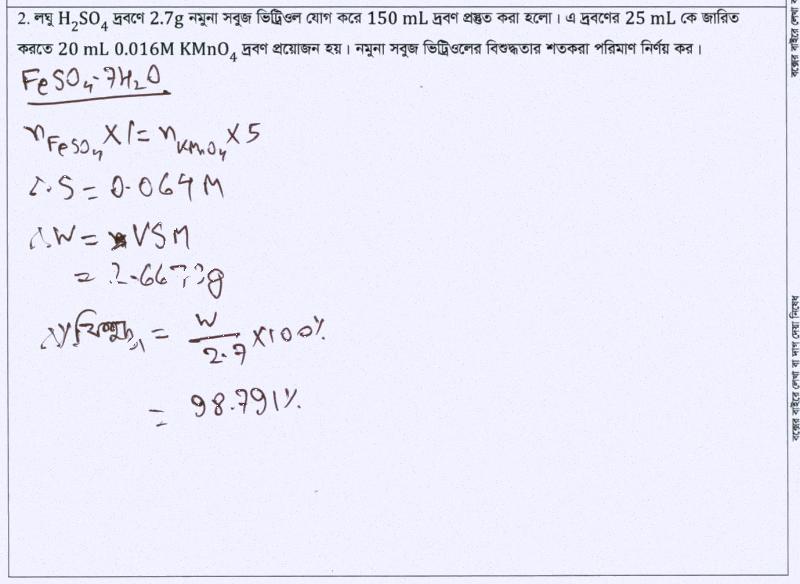 2. লঘু H₂SO₄ দ্রবণে 2.7g নমুনা সবুজ ভিট্রিওল যোগ করে 150 mL দ্রবণ প্রস্তুত করা হলো। এ দ্রবণের 25 mL কে জারিত
করতে 20 mL 0.016M KMnO₄ দ্রবণ প্রয়োজন হয়। নমুনা সবুজ ভিট্রিওলের বিশুদ্ধতার শতকরা পরিমাণ নির্ণয় কর।
FeSO₄·7H₂O
n_FeSO₄ × 1 = n_KMnO₄ × 5
∴ S = 0.064 M
∴ W = VSM
= 2.6673g
= W/2.7 × 100%
= 98.791%
বক্সের বাইরে লেখা বা দাগ দেয়া নিষেধ